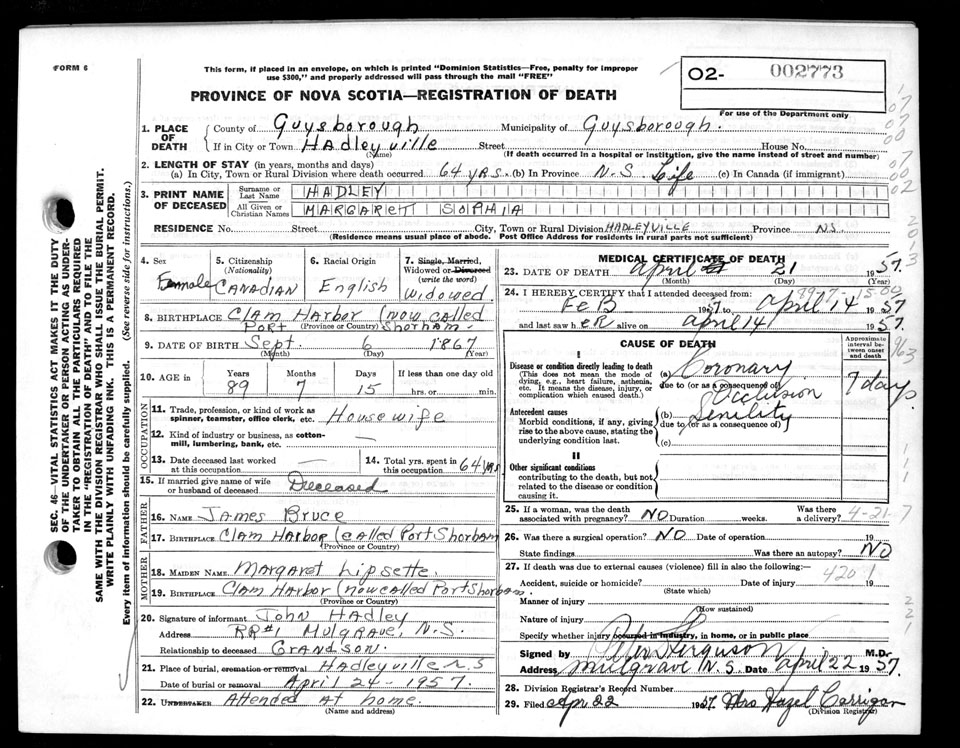 FORM 6
This form, if placed in an envelope, on which is printed "Dominion Statistics—Free, penalty for improper
use $300," and properly addressed will pass through the mail "FREE"
O2- 002773
For use of the Department only
PROVINCE OF NOVA SCOTIA—REGISTRATION OF DEATH
SEC. 46—VITAL STATISTICS ACT MAKES IT THE DUTY
OF THE UNDERTAKER OR PERSON ACTING AS UNDER-
TAKER TO OBTAIN ALL THE PARTICULARS REQUIRED
IN THE "REGISTRATION OF DEATH" AND TO FILE THE
SAME WITH THE DIVISION REGISTRAR WHO SHALL ISSUE THE BURIAL PERMIT.
WRITE PLAINLY WITH UNFADING INK. THIS IS A PERMANENT RECORD.
Every item of information should be carefully supplied. (See reverse side for instructions.)
1. PLACE OF DEATH
County of Guysborough Municipality of Guysborough.
If in City or Town Hadleyville Street House No.
(Name) (If death occurred in a hospital or institution, give the name instead of street and number)
2. LENGTH OF STAY (in years, months and days)
(a) In City, Town or Rural Division where death occurred 64 yrs. (b) In Province N.S. Life (c) In Canada (if immigrant)
3. PRINT NAME OF DECEASED
Surname or Last Name HADLEY
All Given or Christian Names MARGARETT SOPHIA
RESIDENCE No. Street City, Town or Rural Division HADLEYVILLE Province N.S.
(Residence means usual place of abode. Post Office Address for residents in rural parts not sufficient)
4. Sex Female
5. Citizenship (Nationality) CANADIAN
6. Racial Origin English
7. Single, Married, Widowed or Divorced (write the word) Widowed
8. BIRTHPLACE Clam Harbor (now called
Port Shorham.
(Province or Country)
9. DATE OF BIRTH Sept. 6 1867
(Month) (Day) (Year)
10. AGE in Years Months Days If less than one day old
89 7 15 hrs. or min.
OCCUPATION
11. Trade, profession, or kind of work as spinner, teamster, office clerk, etc. Housewife
12. Kind of industry or business, as cotton-mill, lumbering, bank, etc. —
13. Date deceased last worked at this occupation — 14. Total yrs. spent in this occupation 64 yrs.
15. If married give name of wife or husband of deceased Deceased
FATHER
16. NAME James Bruce
17. BIRTHPLACE Clam Harbor (called Port Shorham
(Province or Country)
MOTHER
18. MAIDEN NAME Margaret Lipsette.
19. BIRTHPLACE Clam Harbor (now called Port Shorham.
(Province or Country)
20. Signature of informant John Hadley
Address RR#1 Mulgrave, N.S.
Relationship to deceased Grandson.
21. Place of burial, cremation or removal Hadleyville N.S
Date of burial or removal April 24 - 1957.
22. UNDERTAKER Attended at home.
(Name and address)
MEDICAL CERTIFICATE OF DEATH
23. DATE OF DEATH April 21 1957.
(Month) (Day) (Year)
24. I HEREBY CERTIFY that I attended deceased from:
Feb 1957. to April 14 1957
and last saw her alive on April 14 1957.
CAUSE OF DEATH
Approximate interval between onset and death
I
Disease or condition directly leading to death
(This does not mean the mode of dying, e.g., heart failure, asthenia, etc. It means the disease, injury, or complication which caused death.)
(a) Coronary
due to (or as a consequence of)
Occlusion 7 days.
Antecedent causes
Morbid conditions, if any, giving rise to the above cause, stating the underlying condition last.
(b) Senility
due to (or as a consequence of)
(c)
II
Other significant conditions
contributing to the death, but not related to the disease or condition causing it.
25. If a woman, was the death associated with pregnancy? NO Duration weeks. Was there a delivery? 4-21-7
26. Was there a surgical operation? NO Date of operation 19
State findings Was there an autopsy? NO
27. If death was due to external causes (violence) fill in also the following:—
4201
Accident, suicide or homicide? Date of injury 19
(State which)
Manner of injury
(How sustained)
Nature of injury
Specify whether injury occurred in industry, in home, or in public place
Signed by Ferguson M.D.
Address Mulgrave N.S. Date April 22 1957.
28. Division Registrar's Record Number
29. Filed Apr 22 1957. Mrs Hazel Carrigan
(Division Registrar)